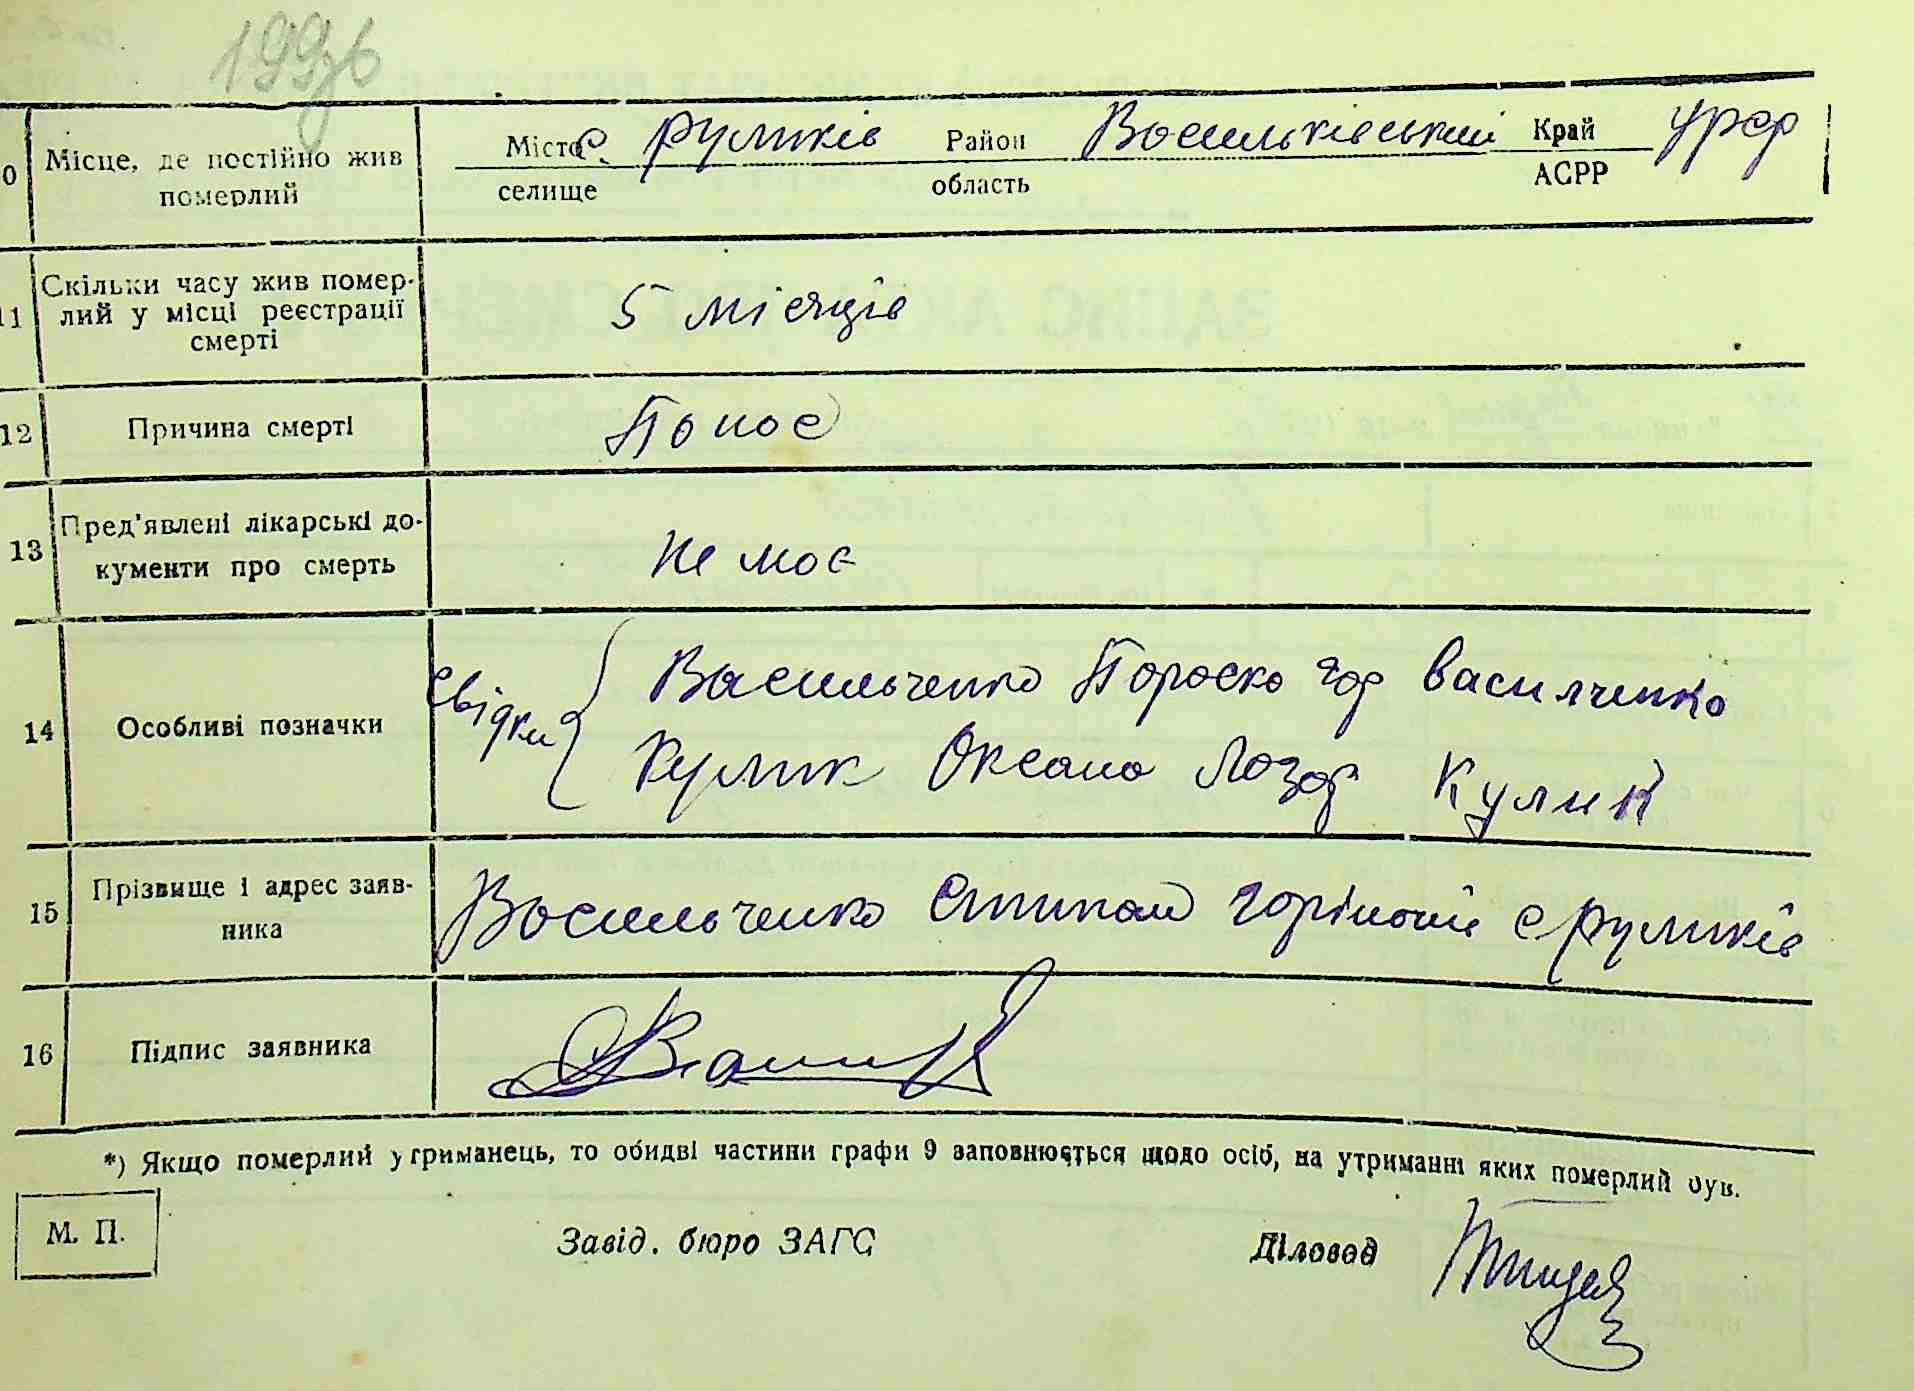 199зв
10 Місце, де постійно жив померлий
Місто с. Руликів Район Васильківський Край УРСР
селище область АСРР
11 Скільки часу жив помер-
лий у місці реєстрації
смерті
5 місяців
12 Причина смерті Понос
13 Пред'явлені лікарські до-
кументи про смерть
Не має
14 Особливі позначки Свідки { Васильченко Пораска Яор Василченко
Кулик Оксана Лазар Кулик
15 Прізвище і адрес заяв-
ника
Васильченко Степан с Руликів
16 Підпис заявника
*) Якщо померлий утриманець, то обидві частини графи 9 заповнюється щодо осіб, на утриманні яких померлий був.
М. П. Завід. бюро ЗАГС Діловод